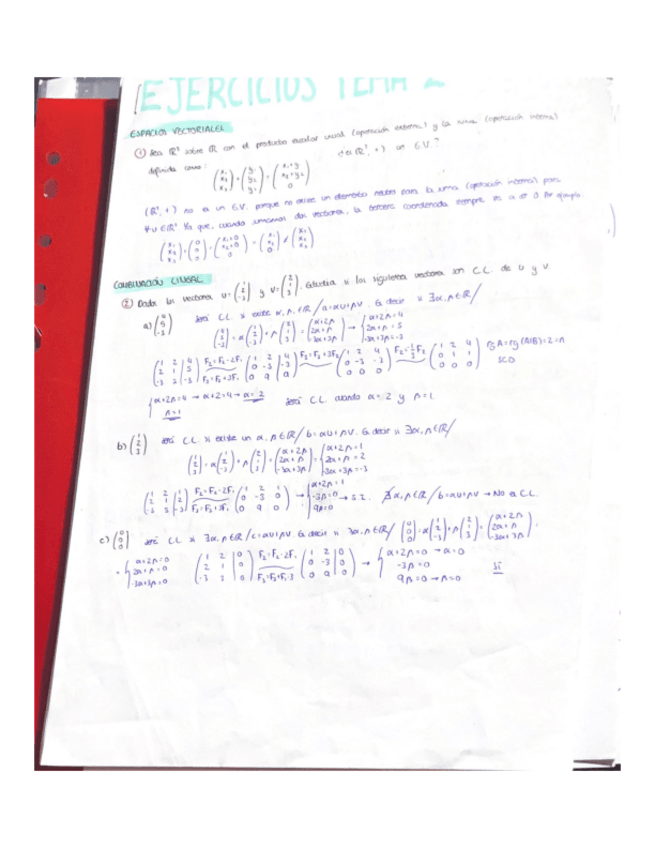 EJERCICIOS TEMA 2
ESPACIOS VECTORIALES
① Sea ℝ³ sobre ℝ con el producto escalar usual (operación externa) y la suma (operación interna)
definida como: (x₁ x₂ x₃) + (y₁ y₂ y₃) = (x₁+y₁ x₂+y₂ 0) ¿Es (ℝ³, +) un E.V.?
(ℝ³, +) no es un E.V. porque no existe un elemento neutro para la suma (operación interna) para
∀u∈ℝ³ ya que, cuando sumamos dos vectores, la tercera coordenada siempre es 0 Por ejemplo
(x₁ x₂ x₃) + (0 0 0) = (x₁+0 x₂+0 0) = (x₁ x₂ 0) ≠ (x₁ x₂ x₃)
COMBINACIÓN LINEAL
② Dados los vectores u=(1 2 -3) y v=(2 1 3). Estudia si los siguientes vectores son C.L. de u y v.
a) (4 5 -3) Será C.L. si existe α, β ∈ℝ / a=αu+βv. Es decir si ∃α,β∈ℝ /
(4 5 -3) = α(1 2 -3) + β(2 1 3) = (α+2β 2α+β -3α+3β) → {α+2β=4 2α+β=5 -3α+3β=-3
(1 2 | 4 2 1 | 5 -3 3 | -3) F₂=F₂-2F₁ F₃=F₃+3F₁ (1 2 | 4 0 -3 | -3 0 9 | 9) F₃=F₃+3F₂ (1 2 4 0 -3 -3 0 0 0) F₂=-1/3F₂ (1 2 4 0 1 1 0 0 0) rg A=rg(A|B)=2=n
SCD
{α+2β=4 → α+2=4 → α=2 β=1 Será C.L. cuando α=2 y β=1
b) (1 2 3) será C.L. si existe un α, β ∈ℝ / b=αu+βv. Es decir si ∃α,β∈ℝ /
(1 2 3) = α(1 2 -3) + β(2 1 3) = (α+2β 2α+β -3α+3β) = {α+2β=1 2α+β=2 -3α+3β=-3
(1 2 | 1 2 1 | 2 -3 3 | -3) F₂=F₂-2F₁ F₃=F₃+3F₁ (1 2 1 0 -3 0 0 9 0) → {α+2β=1 -3β=0 9β=0 → S.I. ∄α,β∈ℝ / b=αu+βv → No es C.L.
c) (0 0 0) será C.L. si ∃α,β∈ℝ / c=αu+βv. Es decir si ∃α,β∈ℝ / (0 0 0) = α(1 2 -3) + β(2 1 3) = (α+2β 2α+β -3α+3β).
= {α+2β=0 2α+β=0 -3α+3β=0 (1 2 | 0 2 1 | 0 -3 3 | 0) F₂=F₂-2F₁ F₃=F₃+F₁·3 (1 2 | 0 0 -3 | 0 0 9 | 0) → {α+2β=0 → α=0 -3β=0 9β=0 → β=0 Sí